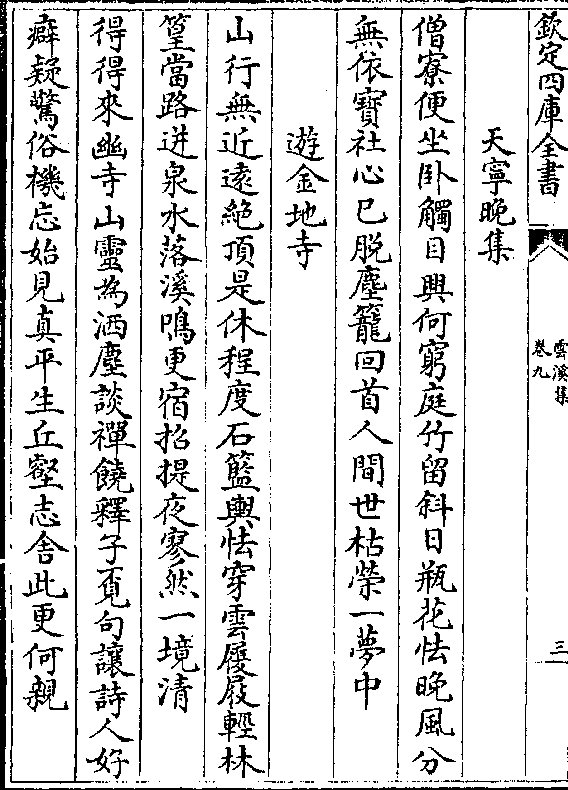 欽定四庫全書
雲溪集
卷九
三
天寧晚集
僧寮便坐卧觸目興何窮庭竹留斜日瓶花怯晚風分
無依寶社心已脱塵籠回首人間世枯榮一夢中
遊金地寺
山行無近遠絶頂是休程度石籃輿怯穿雲屐屐輕林
篁當路迸泉水落溪鳴更宿招提夜寥然一境清
得得來幽寺山靈為洒塵談禪饒釋子覓句讓詩人好
癖疑驚俗機忘始見真平生丘壑志舍此更何親